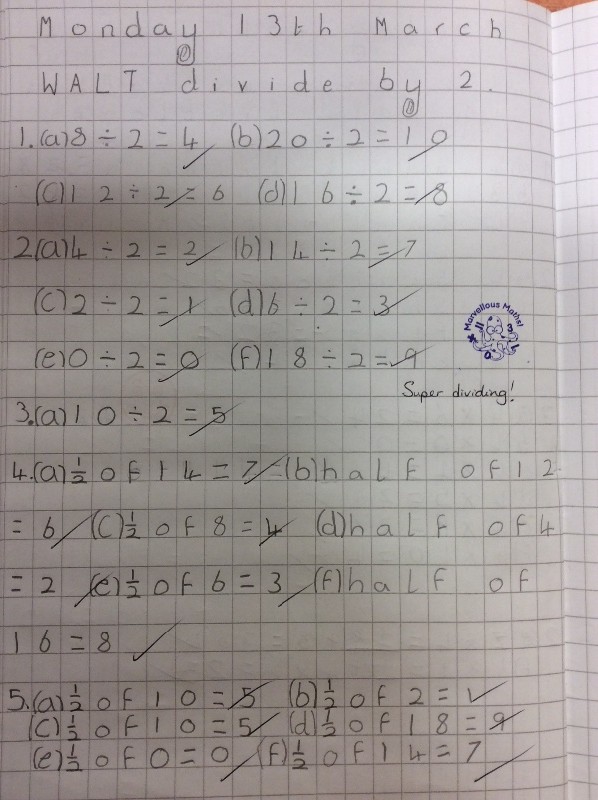 Monday 13th March
WALT divide by 2.
1.(a)8 ÷ 2 = 4 (b)20 ÷ 2 = 10
(c)12 ÷ 2 = 6 (d)16 ÷ 2 = 8
2(a)4 ÷ 2 = 2 (b)14 ÷ 2 = 7
(c)2 ÷ 2 = 1 (d)6 ÷ 2 = 3
Marvellous Maths!
(e)0 ÷ 2 = 0 (f)18 ÷ 2 = 9
Super dividing!
3.(a)10 ÷ 2 = 5
4.(a)½ of 14 = 7 (b)half of 12
= 6 (c)½ of 8 = 4 (d)half of 4
= 2 (e)½ of 6 = 3 (f)half of
16 = 8
5.(a)½ of 10 = 5 (b)½ of 2 = 1
(c)½ of 10 = 5 (d)½ of 18 = 9
(e)½ of 0 = 0 (f)½ of 14 = 7